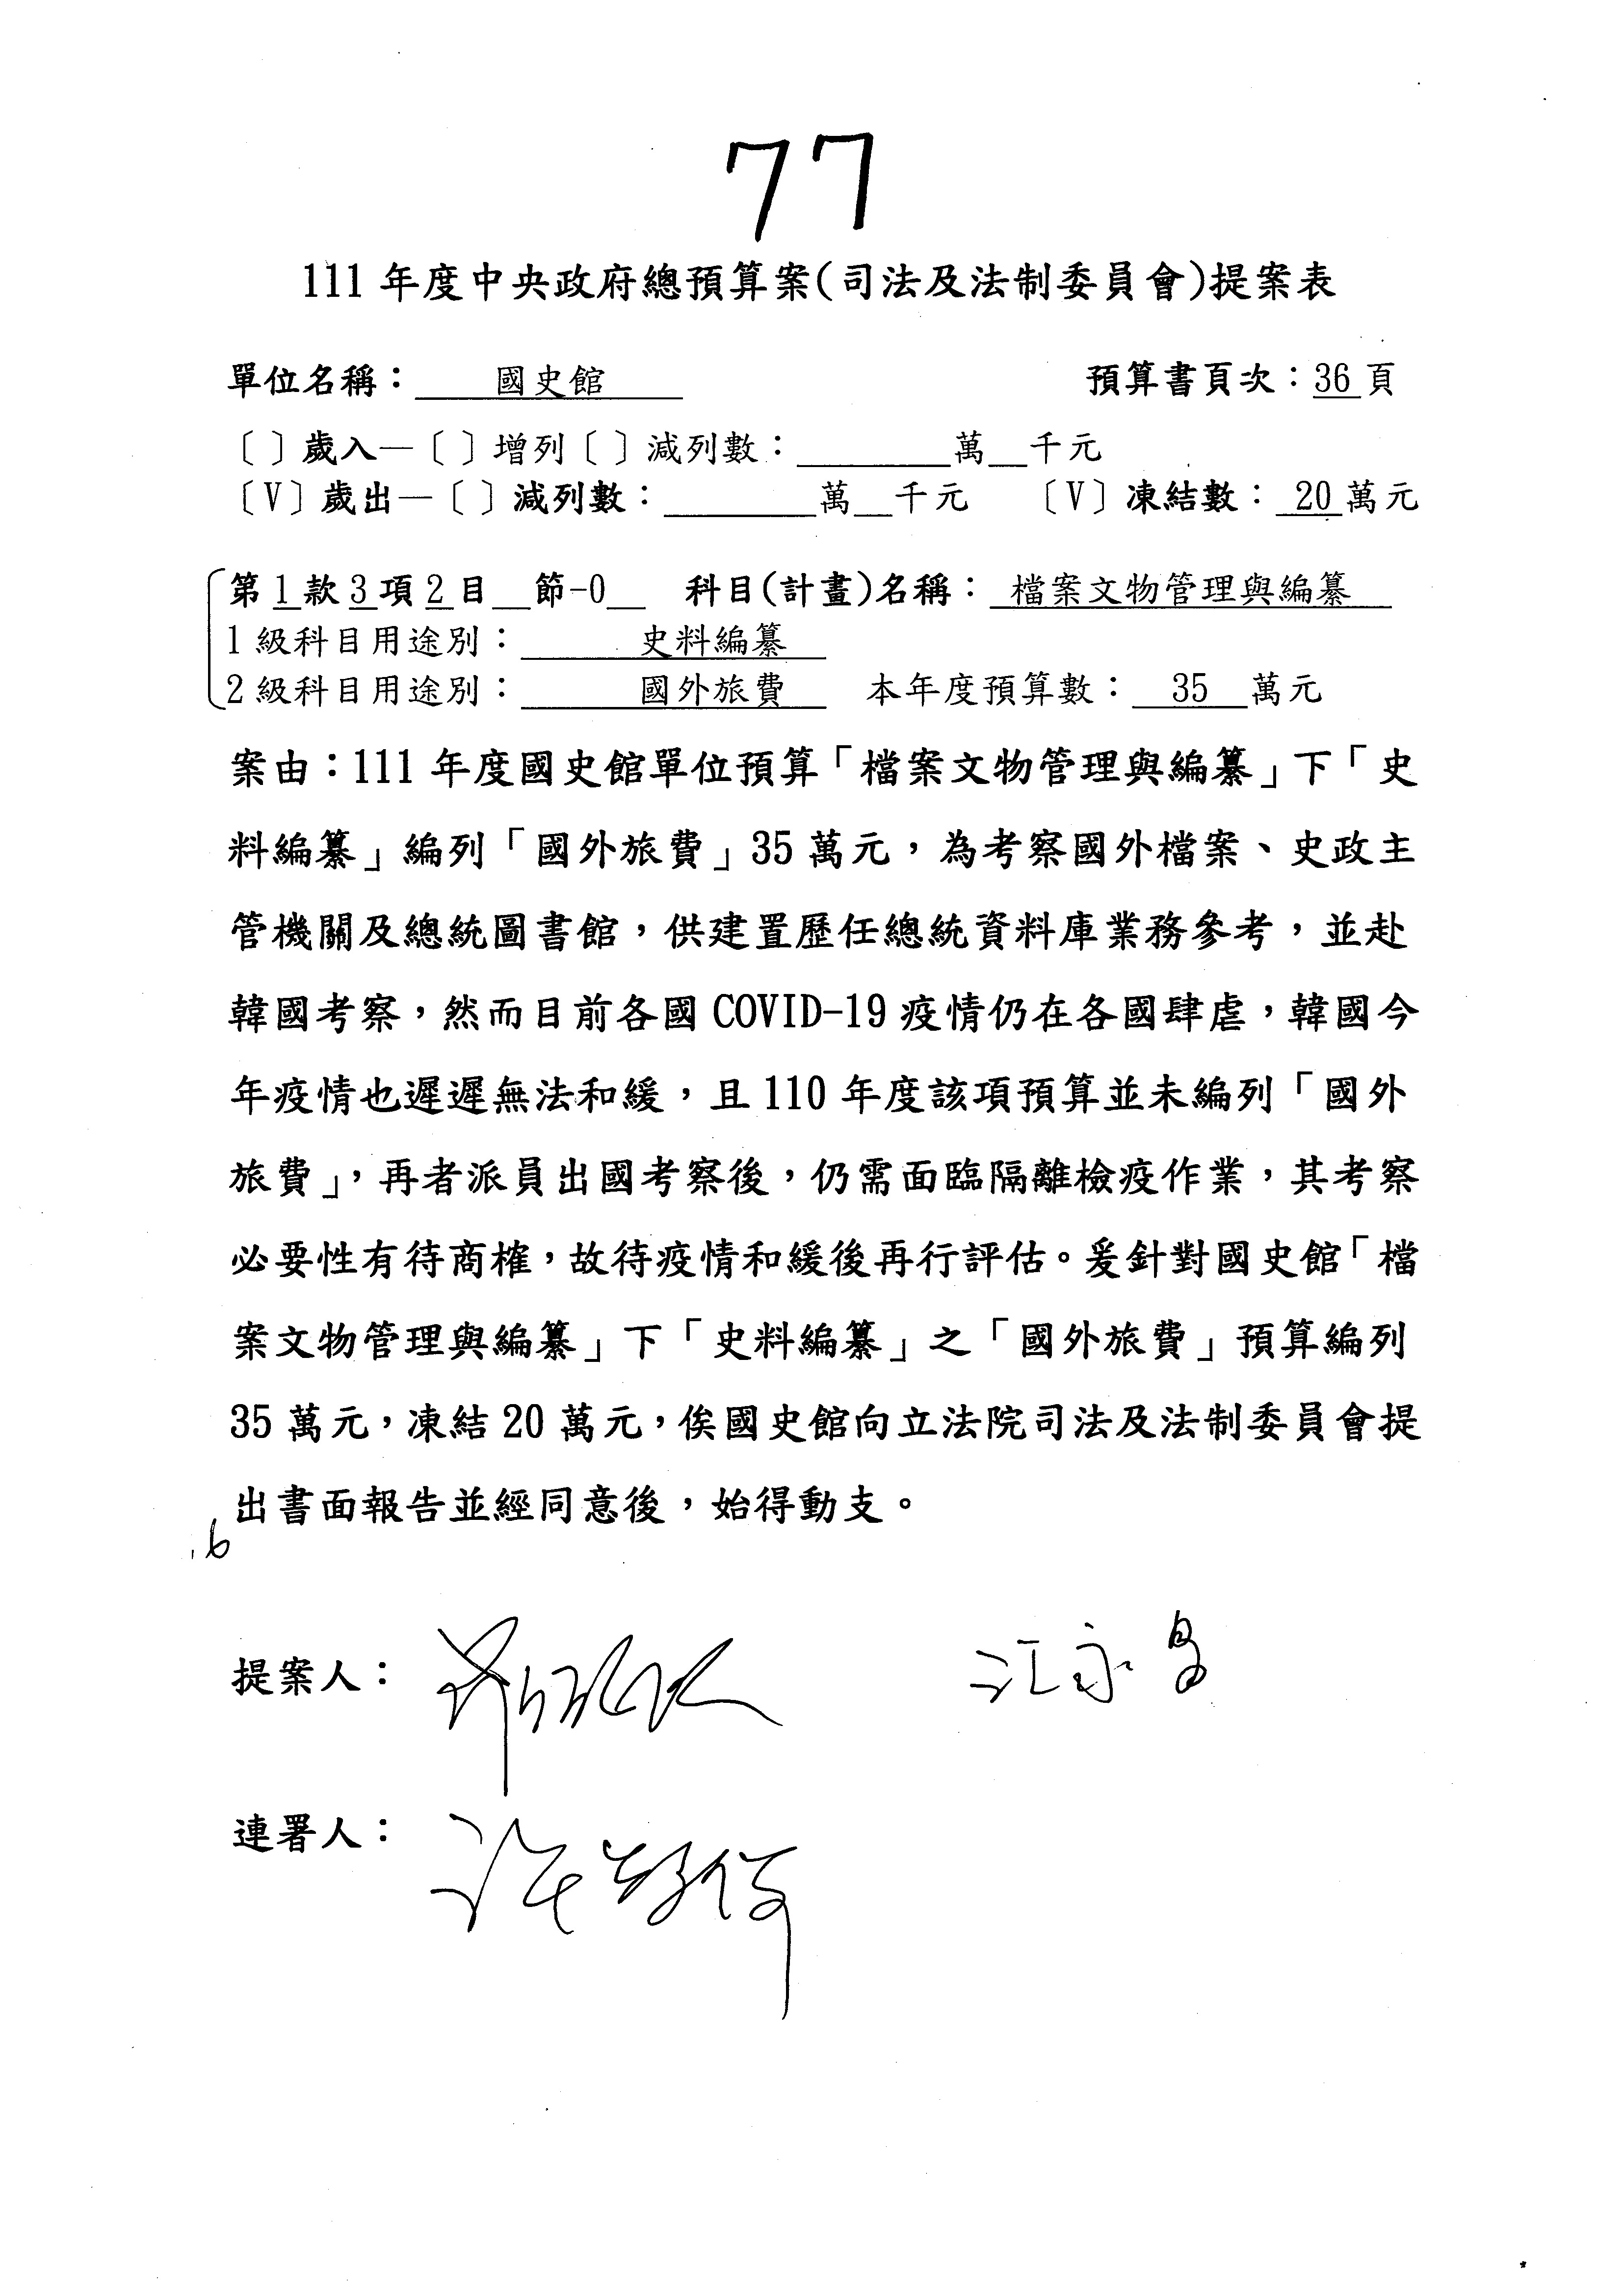 77
111年度中央政府總預算案(司法及法制委員會)提案表
單位名稱：國史館 預算書頁次：36頁
〔 〕歲入—〔 〕增列〔 〕減列數：____萬__千元
〔V〕歲出—〔 〕減列數：____萬__千元 〔V〕凍結數：20萬元
第1款3項2目__節-0__ 科目(計畫)名稱：檔案文物管理與編纂
1級科目用途別：史料編纂
2級科目用途別：國外旅費 本年度預算數：35萬元
案由：111年度國史館單位預算「檔案文物管理與編纂」下「史
料編纂」編列「國外旅費」35萬元，為考察國外檔案、史政主
管機關及總統圖書館，供建置歷任總統資料庫業務參考，並赴
韓國考察，然而目前各國COVID-19疫情仍在各國肆虐，韓國今
年疫情也遲遲無法和緩，且110年度該項預算並未編列「國外
旅費」，再者派員出國考察後，仍需面臨隔離檢疫作業，其考察
必要性有待商榷，故待疫情和緩後再行評估。爰針對國史館「檔
案文物管理與編纂」下「史料編纂」之「國外旅費」預算編列
35萬元，凍結20萬元，俟國史館向立法院司法及法制委員會提
出書面報告並經同意後，始得動支。
提案人： 江永昌
連署人：